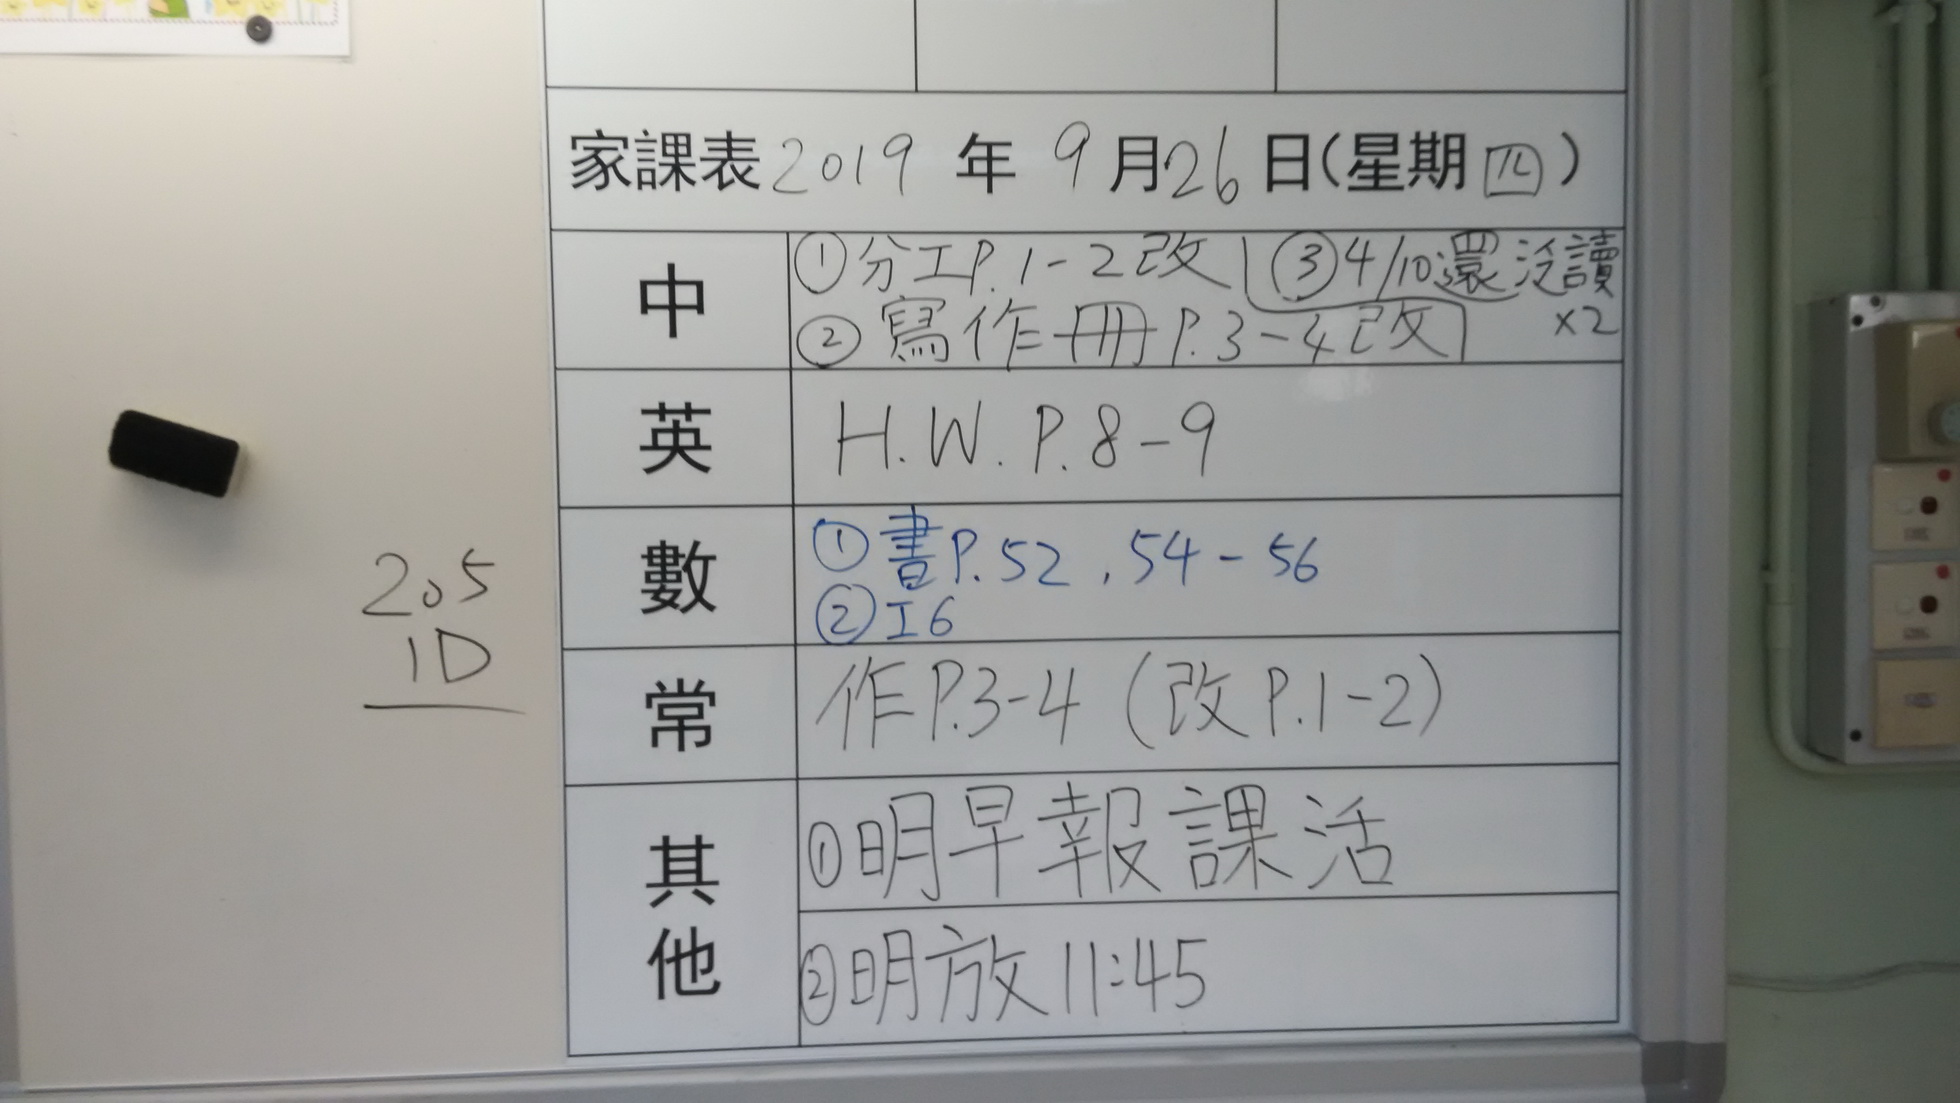 家課表2019 年 9 月26 日(星期四)
中
①分工P.1-2改
③4/10還沒讀
x2
②寫作冊P.3-4改
英
H.W. P.8-9
數
①書P.52,54-56
②I6
205
1D
常
作P.3-4(改P.1-2)
其他
①明早報課活
②明放11:45